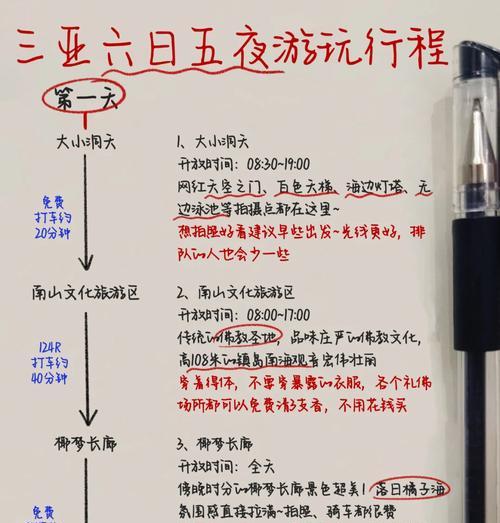 三亚六日五夜游玩行程
第一天
大小洞天
免费
打车约
20分钟
1、大小洞天
开放时间：08:30-19:00
网红天空之门、百色天梯、海边灯塔、无
边泳池等拍摄点都在这里~
想拍照好看建议早些出发~光线更好，排
队的人也会少一些
南山文化旅游区
124R
打车约
40分钟
2、南山文化旅游区
开放时间：08:00-17:00
传统的佛教圣地，品味庄严的佛教文化，
高108米的镇岛南海观音宏伟壮丽
穿着得体，不要穿暴露的衣服，各个礼佛
场所都可以免费清3支香，不用花钱买
椰梦长廊
免费
3、椰梦长廊
开放时间：全天
傍晚时分的椰梦长廊景色超美！落日橘子海
氛围感直接拉满~拍照、骑车都很赞